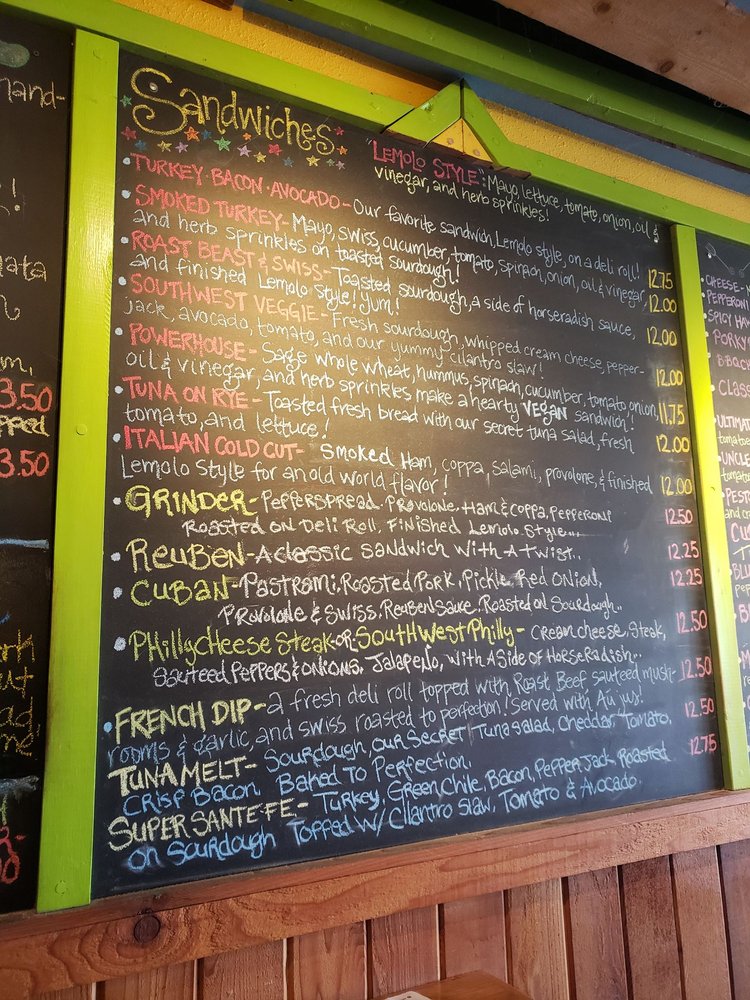 Sandwiches
"LEMOLO STYLE": Mayo, lettuce, tomato, onion, oil &
vinegar, and herb sprinkles!
• TURKEY-BACON-AVOCADO- Our favorite sandwich, Lemolo style, on a deli roll! 12.75
• SMOKED TURKEY- Mayo, swiss, cucumber, tomato, spinach, onion, oil & vinegar,
and herb sprinkles on toasted sourdough! 12.00
• ROAST BEAST & SWISS- Toasted sourdough, a side of horseradish sauce,
and finished Lemolo Style! Yum! 12.00
• SOUTHWEST VEGGIE- Fresh sourdough, whipped cream cheese, pepper-
jack, avocado, tomato, and our yummy cilantro slaw! 12.00
• POWERHOUSE- Sage whole wheat, hummus, spinach, cucumber, tomato, onion,
oil & vinegar, and herb sprinkles make a hearty VEGAN sandwich! 11.75
• TUNA ON RYE- Toasted fresh bread with our secret tuna salad, fresh
tomato, and lettuce! 12.00
• ITALIAN COLD CUT- Smoked Ham, coppa, salami, provolone, & finished
Lemolo Style for an old world flavor! 12.00
• GRINDER- PEPPERSPREAD. PROVOLONE, HAM & COPPA, PEPPERONI 12.50
ROASTED ON DELI ROLL, FINISHED LEMOLO STYLE...
• REUBEN- A CLASSIC SANDWICH WITH A TWIST.. 12.25
• CUBAN- PASTRAMI, ROASTED PORK, PICKLE, RED ONION, 12.25
PROVOLONE & SWISS, REUBEN SAUCE, ROASTED ON SOURDOUGH..
• PHILLY CHEESE STEAK -OR- SOUTHWEST PHILLY- CREAM CHEESE, STEAK, 12.50
SAUTEED PEPPERS & ONIONS, JALAPEÑO, WITH A SIDE OF HORSERADISH...
• FRENCH DIP- a fresh deli roll topped with Roast Beef sauteed mush- 12.50
rooms & garlic and swiss roasted to perfection! Served with Au jus!
TUNA MELT- Sourdough, our Secret Tuna salad, Cheddar Tomato, 12.50
CRISP Bacon, Baked To Perfection.
SUPER SANTE FE- Turkey, Green Chile, Bacon, Pepper Jack, Roasted 12.75
on Sourdough Topped w/ Cilantro Slaw, Tomato & Avocado.
hand-
3.50
3.50
CHEESE-
PEPPERONI
SPICY HA
PORKY
CLAS
ULTIMAT
UNCLE
PEST
and